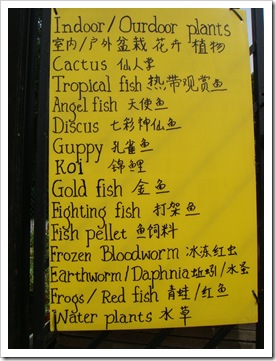 Indoor/Ourdoor plants
室内/户外盆栽 花卉 植物
Cactus 仙人掌
Tropical fish 热带观赏鱼
Angel fish 天使鱼
Discus 七彩神仙鱼
Guppy 孔雀鱼
Koi 锦鲤
Gold fish 金鱼
Fighting fish 打架鱼
Fish pellet 鱼饲料
Frozen Bloodworm 冰冻红虫
Earthworm/Daphnia 蚯蚓/水圣
Frogs/Red fish 青蛙/红鱼
Water plants 水草